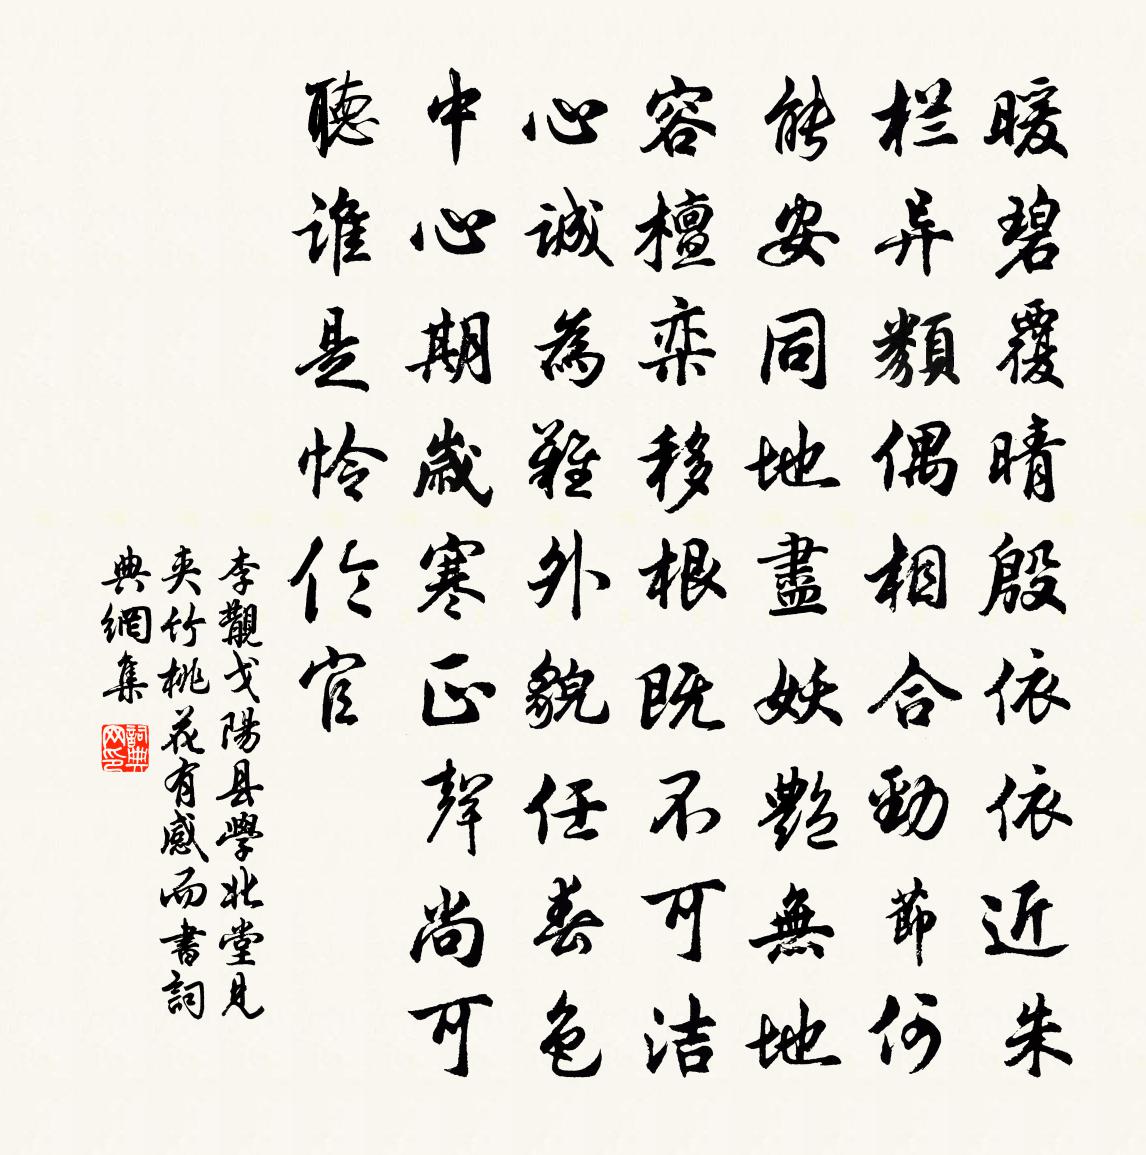 暖碧覆晴殷依依近朱
栏异類偶相合勁節何
能安同地盡妖艷無地
容檀栾移根既不可洁
心誠為難外貌任春色
中心期歲寒正聲尚可
聽誰是怜伶官
李觀戈陽县學北堂見
夾竹桃花有感而書詞
典網集
詞典网印